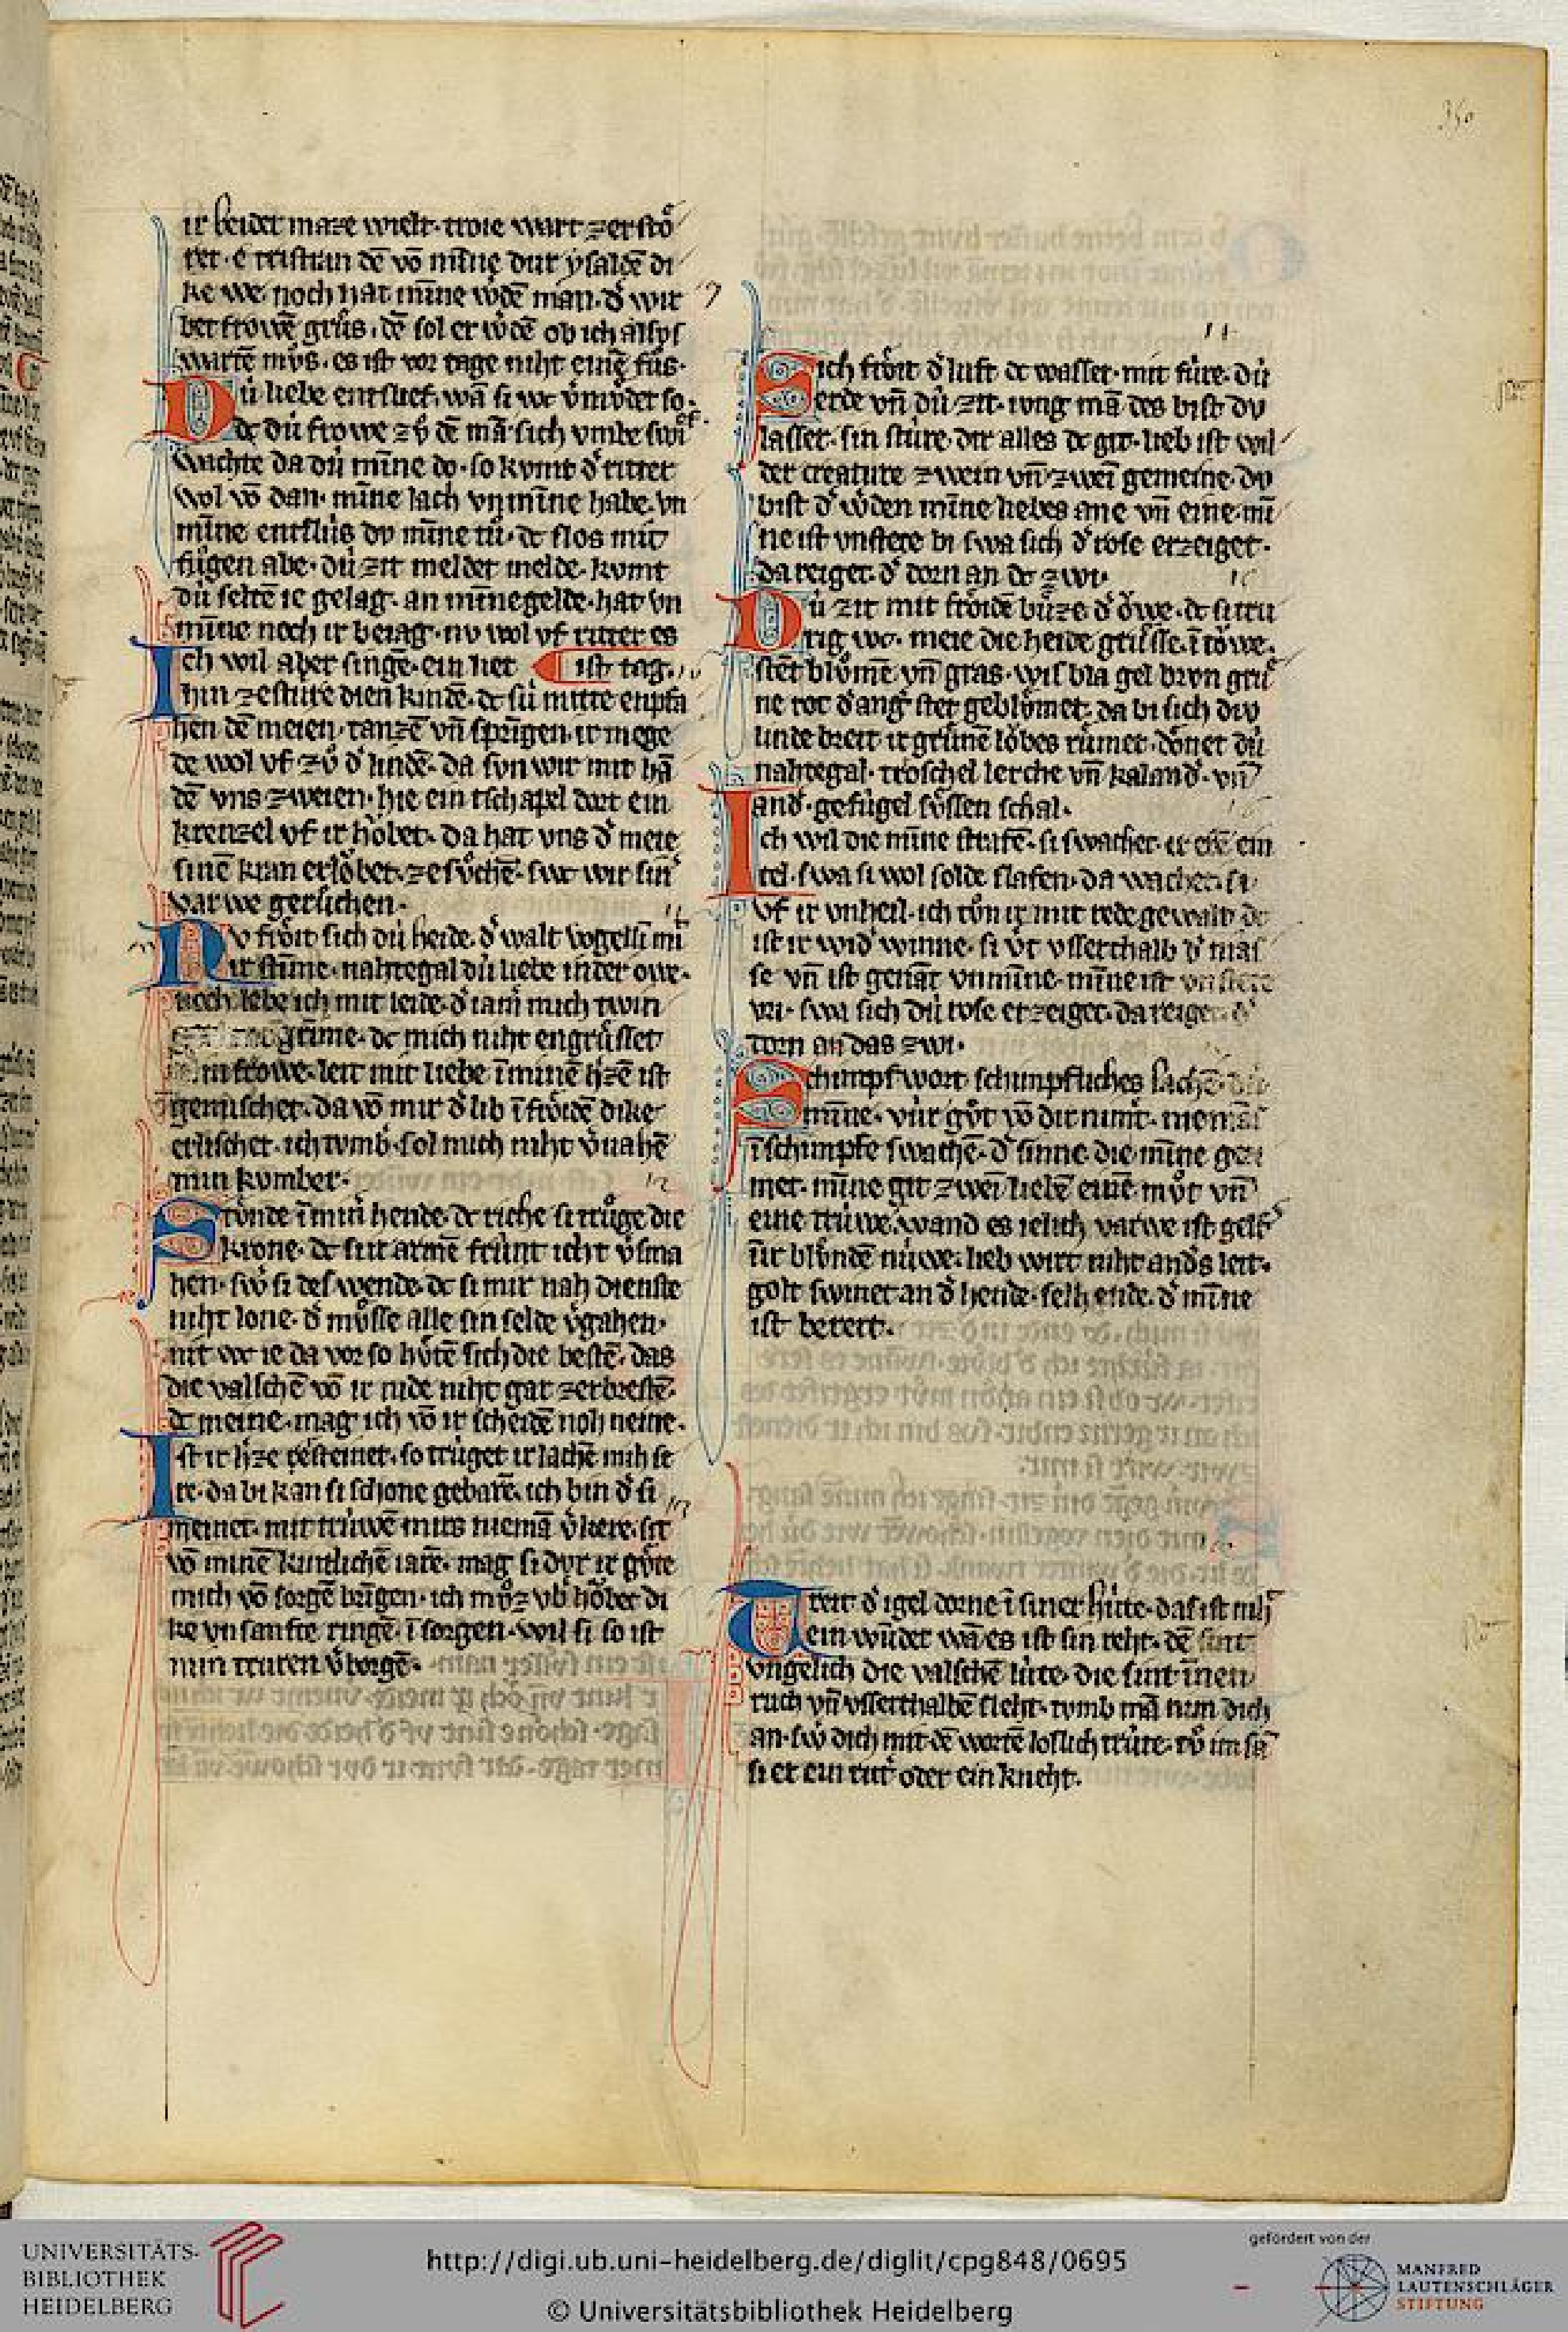 350
ir beider maze wielt. troie wart zerstoͤ
ret. e tristran dē vō minne dur ysaldē di
ke we. noch hat minne wdē man. dˢ wir
bet frowē gruͦs. dē sol er wdē ob ich alsus
wartē muͦs. es ist vor tage niht einē fuͦs.
Dú liebe entslief. wā si wc vˢmuͤdet so.
dc dú frowe zuͦ dē mā sich vmbe swief.
wachte da dú mīne do. so kvmt dˢ ritter
wol vō dan. mīne lach vnmīne habe. vn
mīne entslús dv mīne tú. dc slos mit
fuͦgen abe. dú zit meldet melde. kvmt
dú seltē ie gelag. an mīnegelde. hat vn
mīne noch ir beiag. nv wol vf ritter es
ist tag.
Ich wil aber singē. ein liet
hin zestúre dien kindē. dc sú mitte enpfa
hen dē meien. tanzē vn̄ sprīgen. ir mege
de wol vf zuͦ dˢ lindē. da svn wir mit hā
dē vns zweien. hie ein tschapel dort ein
krenzel vf ir hoͤbet. da hat vns dˢ meie
sinē kran erloͤbet. ze suͦchē. swc wir sin
varwe geruͦchen.
Nv froͤit sich dú heide. dˢ walt vogellī mi
ir stīme. nahtegal dú liebe in der owe.
noch lebe ich mit leide. dˢ iamˢ mich twin
grīme. dc mich niht engruͤsset
min frowe. leit mit liebe ī minē hˢzē ist
gemischet. da vō mir dˢ lib ī froͤidē dike
erlischet. ich tvmbˢ. sol mich niht vˢvahē
min kvmber.
Stúnde ī min hende. dc riche si truͤge die
krone. dc sur armē frúnt icht vˢsma
hen. swˢ si des wende. dc si mir nah dienste
niht lone. dˢ muͤsse alle sin selde vˢgahen.
nit wc ie da vor so huͤtē sich die bestē. das
die valschē vō ir nide niht gar zerbrestē.
dc meine. mag ich vō ir scheidē noh neine.
Ist ir hˢze gesteinet. so trúget ir lachē mih se
re. da bi kan si schone gebarē. ich bin dˢ si
meinet. mit trúwē mirs niemā vˢkere. sit
vō minē kintlichē iarē. mag si dvr ir guͤte
mich vō sorgē brīgen. ich muͦz vbˢ hoͤbet di
ke vnsanfte ringē. ī sorgen. wil si so ist
min truren vˢborgē.
Sich froͤit dˢ luft dc wasser. mit fúre. dú
erde vn̄ dú zit. ivng mā des bist dv
lasser. sin stúre. dir alles dc git. lieb ist wil
der creature zwein vn̄ zweī gemeine. dv
bist dˢ wˢden mīne liebes ane vn̄ eine. mī
ne ist vnstete bi swa sich dˢ rose erzeiget.
da reiget. dˢ dorn an dc zwi.
Dú zit mit froͤidē buͤze. dˢ oͮwe. dc si tru
rig wc. meie die heide gruͤsse. ī toͮwe.
stēt bluͦmē vn̄ gras. wis bla gel brvn gruͤ
ne rot dˢ angˢ stet gebluͤmet. da bi sich dú
linde breit ir gruͤnē loͮbes ruͤmet. doͤnet dú
nahtegal. troschel lerche vn̄ kalandˢ. vn̄
andˢ. gefúgel suͤssen schal.
Ich wil die mīne strafē. si swachet. ir ebē ein
teil. swa si wol solde slafen. da wachet. si
vf ir vnheil. ich tuͦn ir mit rede gewalt. dc
ist ir widˢ winne. si vˢt vsserthalb dˢ mās
se vn̄ ist genāt vnmīne. mīne ist vnstete
bi. swa sich dú rose erzeiget. da reiget. dˢ
torn an das zwi.
Schimpf wort schimpfliches lachē. dú
mīne. vúr guͦt vō dir nimt. niemās
ī schimpfe swachē. dˢ sinne. die mīne gezi
met. mīne git zweī liebē einē muͦt vn̄
eine trúwe. wand es ielich varwe ist gelf
úr bluͦndē núwe. lieb wirt niht andˢs leit.
golt swinet an dˢ hende. selh ende. dˢ mīne
ist bereit.
Treit dˢ igel dorne ī siner húte. das ist niht
ein wūder wā es ist sin reht. dē sint
vngelich die valschē lúte. die sint īnen
ruch vn̄ vsserthalbē sleht. tvmb mā nim dich
an. swˢ dich mit dē wortē loslich trúte. tuͦ im sā
si er ein rittˢ oder ein kneht.
UNIVERSITÄTS-
BIBLIOTHEK
HEIDELBERG
http://digi.ub.uni-heidelberg.de/diglit/cpg848/0695
© Universitätsbibliothek Heidelberg
gefördert von der
MANFRED
LAUTENSCHLÄGER
STIFTUNG